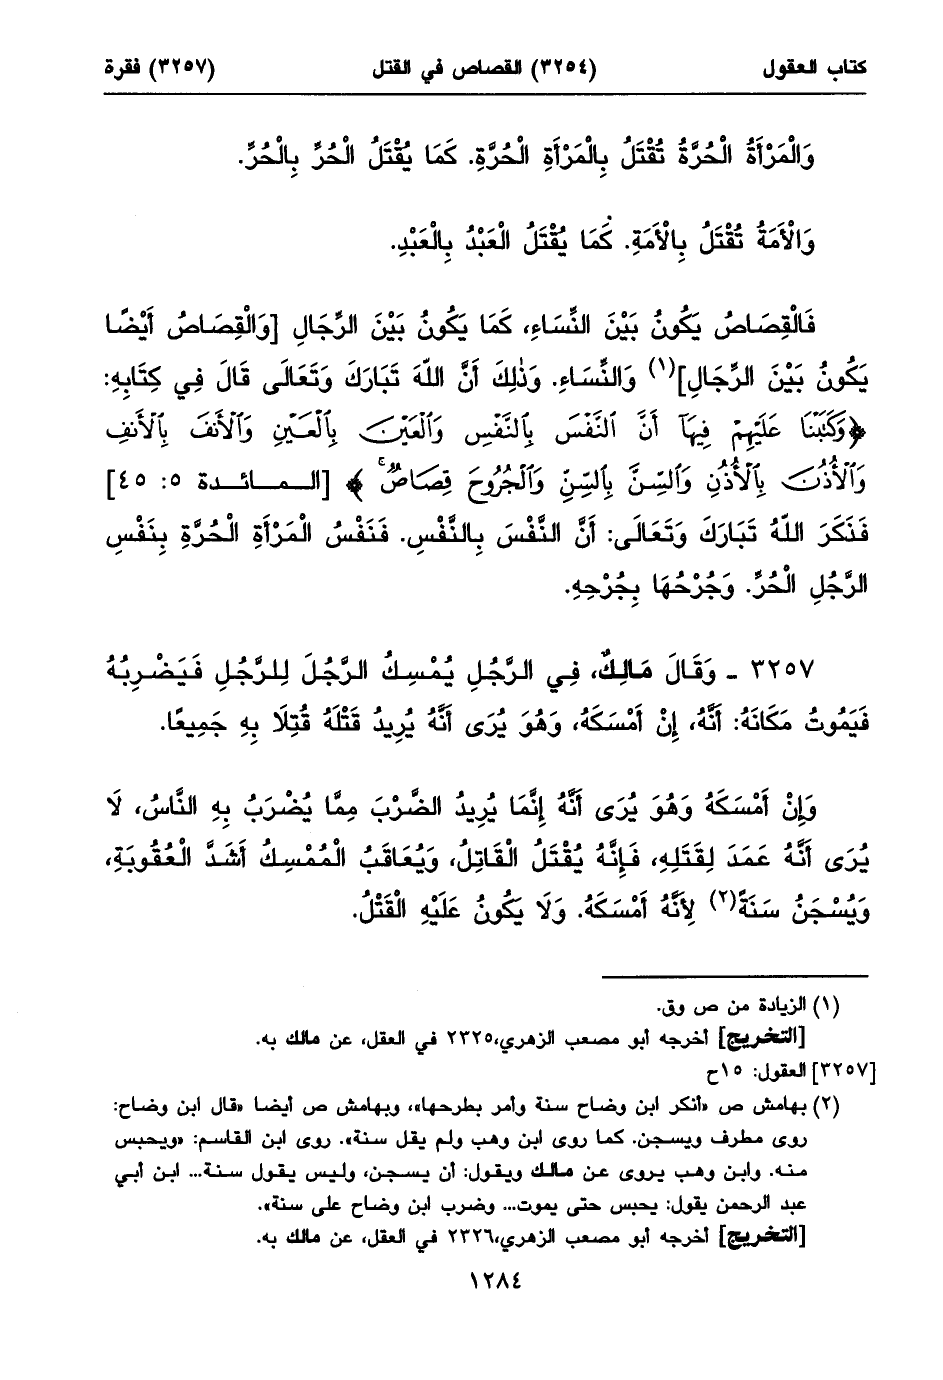 كتاب العقول (٣٢٥٤) القصاص في القتل (٣٢٥٧) فقرة
وَالْمَرْأَةُ الْحُرَّةُ تُقْتَلُ بِالْمَرْأَةِ الْحُرَّةِ. كَمَا يُقْتَلُ الْحُرُّ بِالْحُرِّ.
وَالْأَمَةُ تُقْتَلُ بِالْأَمَةِ. كَمَا يُقْتَلُ الْعَبْدُ بِالْعَبْدِ.
فَالْقِصَاصُ يَكُونُ بَيْنَ النِّسَاءِ، كَمَا يَكُونُ بَيْنَ الرِّجَالِ [وَالْقِصَاصُ أَيْضًا
يَكُونُ بَيْنَ الرِّجَالِ](١) وَالنِّسَاءِ. وَذٰلِكَ أَنَّ اللّهَ تَبَارَكَ وَتَعَالَى قَالَ فِي كِتَابِهِ:
﴿وَكَتَبْنَا عَلَيْهِمْ فِيهَآ أَنَّ ٱلنَّفْسَ بِٱلنَّفْسِ وَٱلْعَيْنَ بِٱلْعَيْنِ وَٱلْأَنفَ بِٱلْأَنفِ
وَٱلْأُذُنَ بِٱلْأُذُنِ وَٱلسِّنَّ بِٱلسِّنِّ وَٱلْجُرُوحَ قِصَاصٌ ۚ ﴾ [الـمـائـدة ٥: ٤٥]
فَذَكَرَ اللّهُ تَبَارَكَ وَتَعَالَى: أَنَّ النَّفْسَ بِالنَّفْسِ. فَنَفْسُ الْمَرْأَةِ الْحُرَّةِ بِنَفْسِ
الرَّجُلِ الْحُرِّ. وَجُرْحُهَا بِجُرْحِهِ.
٣٢٥٧ ـ وَقَالَ مَالِكٌ، فِي الرَّجُلِ يُمْسِكُ الرَّجُلَ لِلرَّجُلِ فَيَضْرِبُهُ
فَيَمُوتُ مَكَانَهُ: أَنَّهُ، إِنْ أَمْسَكَهُ، وَهُوَ يُرَى أَنَّهُ يُرِيدُ قَتْلَهُ قُتِلَا بِهِ جَمِيعًا.
وَإِنْ أَمْسَكَهُ وَهُوَ يُرَى أَنَّهُ إِنَّمَا يُرِيدُ الضَّرْبَ مِمَّا يُضْرَبُ بِهِ النَّاسُ، لَا
يُرَى أَنَّهُ عَمَدَ لِقَتْلِهِ، فَإِنَّهُ يُقْتَلُ الْقَاتِلُ، وَيُعَاقَبُ الْمُمْسِكُ أَشَدَّ الْعُقُوبَةِ،
وَيُسْجَنُ سَنَةً(٢) لِأَنَّهُ أَمْسَكَهُ. وَلَا يَكُونُ عَلَيْهِ الْقَتْلُ.
(١) الزيادة من ص وق.
[التخريج] أخرجه أبو مصعب الزهري،٢٣٢٥ في العقل، عن مالك به.
[٣٢٥٧] العقول: ١٥ح
(٢) بهامش ص «أنكر ابن وضاح سنة وأمر بطرحها»، وبهامش ص أيضا «قال ابن وضاح:
روى مطرف ويسجن. كما روى ابن وهب ولم يقل سنة». روى ابن القاسم: «ويحبس
منه. وابن وهب يروى عن مالك ويقول: أن يسجن، وليس يقول سنة... ابن أبي
عبد الرحمن يقول: يحبس حتى يموت... وضرب ابن وضاح على سنة».
[التخريج] أخرجه أبو مصعب الزهري،٢٣٢٦ في العقل، عن مالك به.
١٢٨٤